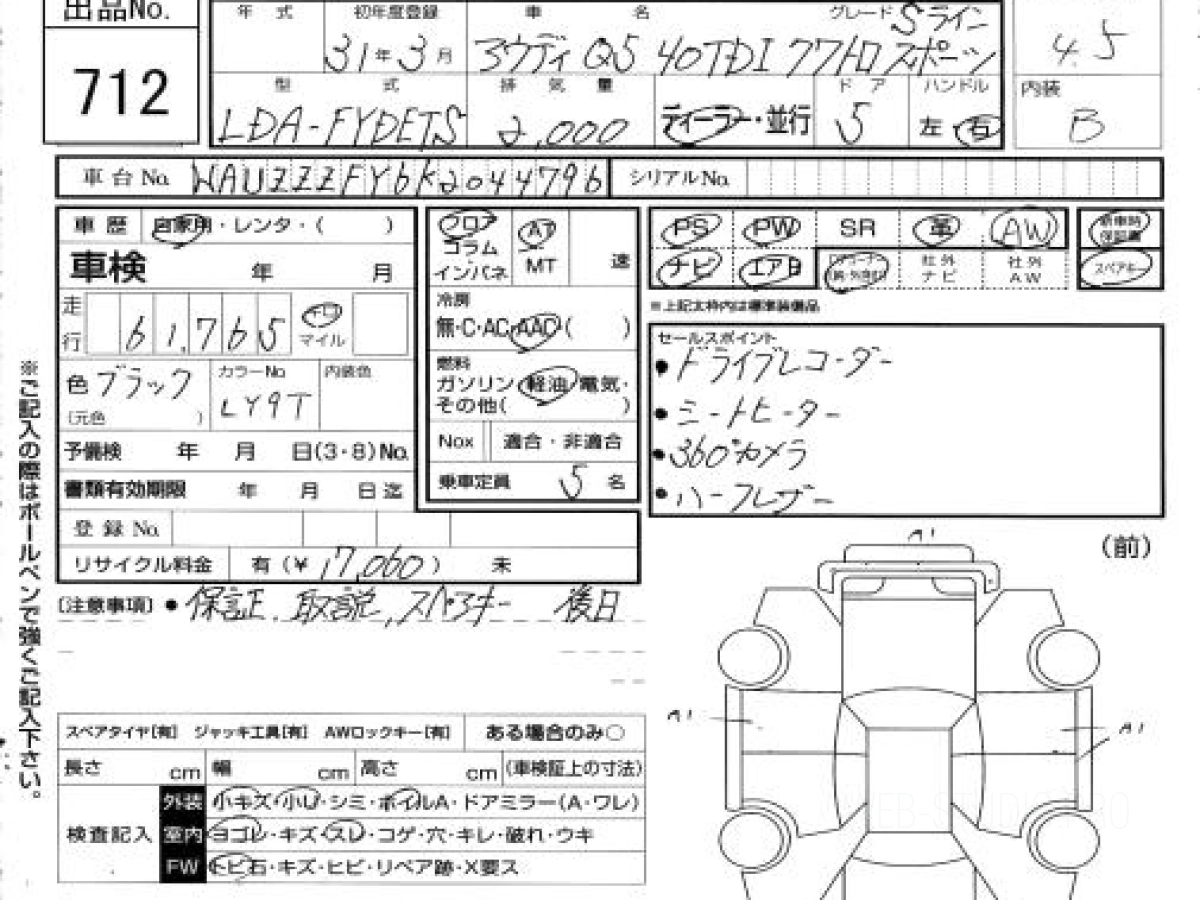 出品No.
712
年 式
初年度登録
31年3月
車 名
アウディ Q5 40TDI クワトロ スポーツ
グレード Sライン
4.5
型 式
LDA-FYDETS
排 気 量
2,000
ディーラー・並行
ド ア
5
ハンドル
左 右
内装
B
車 台 No. WAUZZZFY6K2044796
シリアルNo.
車 歴 自家用・レンタ・( )
車検 年 月
走行 61,765 キロ マイル
色 ブラック
(元色 )
カラーNo
LY9T
内装色
予備検 年 月 日(3・8)No.
書類有効期限 年 月 日迄
登 録 No.
リサイクル料金 有 (¥ 17,060) 未
フロア
コラム
インパネ
AT
MT
速
冷房
無・C・AC・AAC( )
燃料
ガソリン・軽油・電気・
その他( )
Nox 適合・非適合
乗車定員 5 名
PS PW SR 革 AW
ナビ エアB
社外ナビ
社外AW
新車時保証書
スペアキー
※上記太枠内は標準装備品
セールスポイント
●ドライブレコーダー
●シートヒーター
●360°カメラ
●ハーフレザー
〔注意事項〕 ●保証、取説、スペアキー 後日
※ご記入の際はボールペンで強くご記入下さい。
(前)
A1
A1
A1
スペアタイヤ[有] ジャッキ工具[有] AWロックキー[有] ある場合のみ○
長さ cm 幅 cm 高さ cm (車検証上の寸法)
検査記入
外装 小キズ・小U・シミ・ホイルA・ドアミラー(A・ワレ)
室内 ヨゴレ・キズ・スレ・コゲ・穴・キレ・破れ・ウキ
FW トビ石・キズ・ヒビ・リペア跡・X要ス